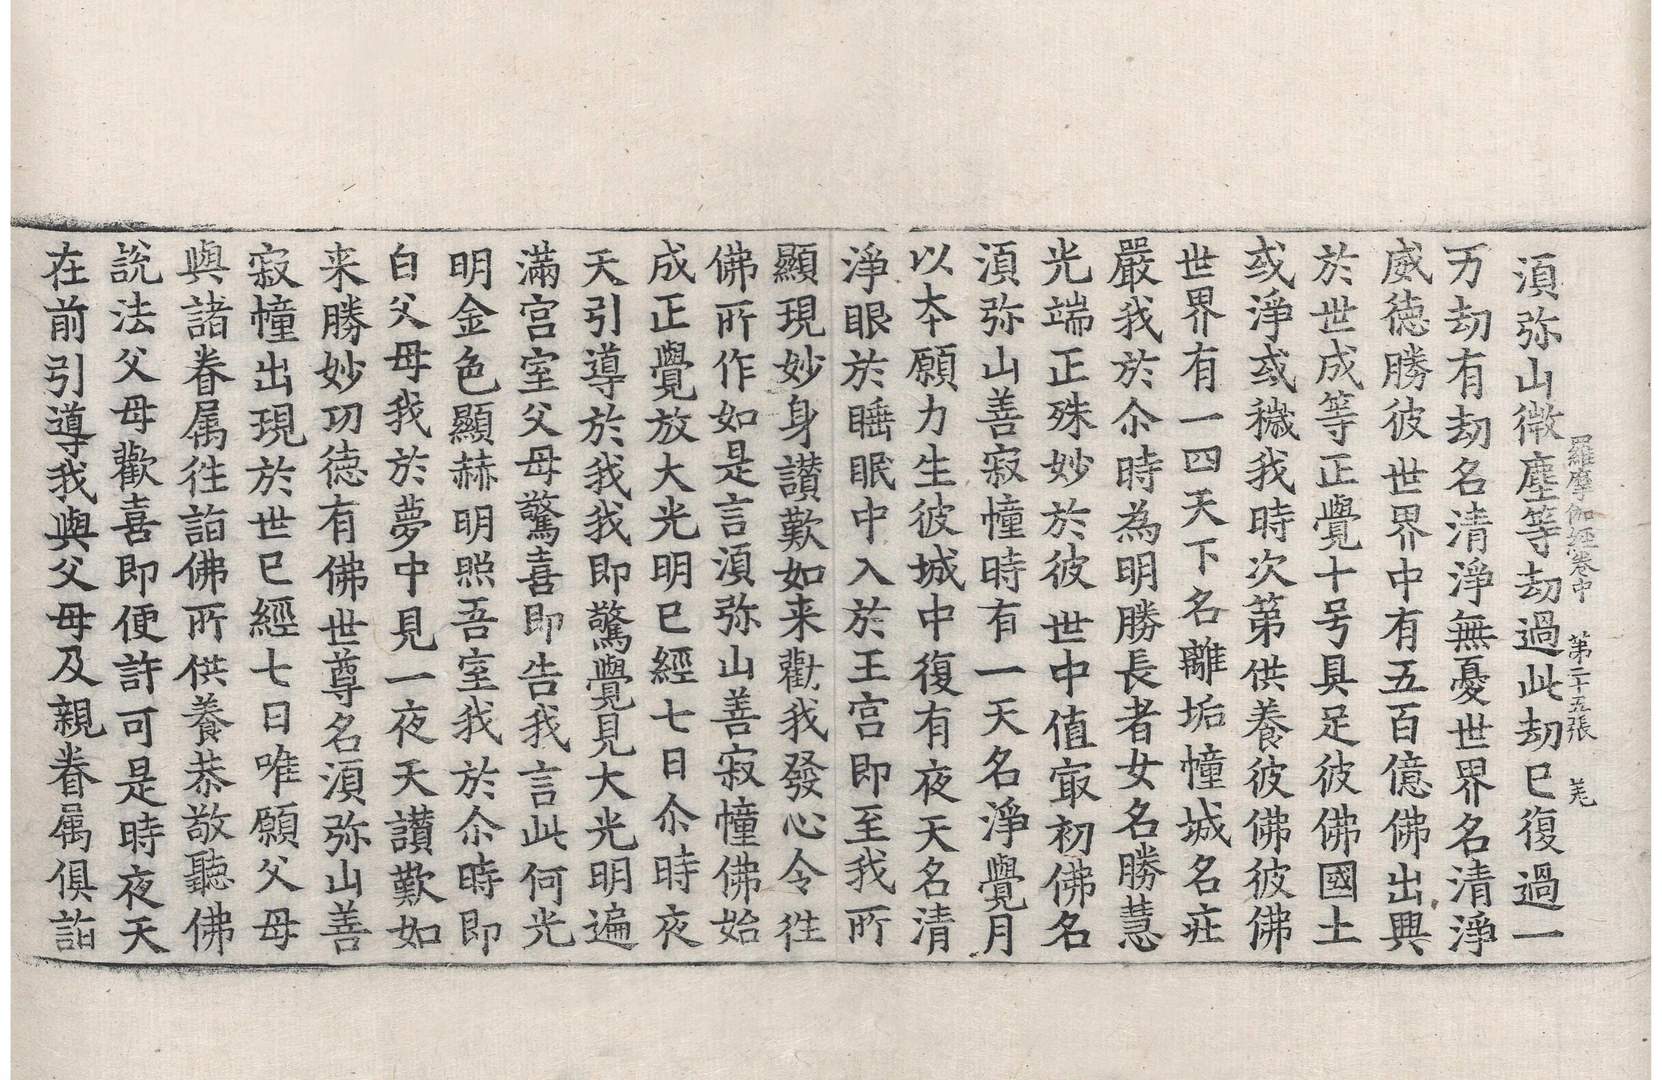 羅摩伽経卷中　第二十五張　羗
湏弥山微塵等劫過此劫已復過一
万劫有劫名清淨無憂世界名清淨
威徳勝彼世界中有五百億佛出興
於世成等正覺十号具足彼佛國土
或淨或穢我時次第供養彼佛彼佛
世界有一四天下名離垢幢城名疘
嚴我於尒時為明勝長者女名勝慧
光端正殊妙於彼世中值㝡初佛名
湏弥山善寂幢時有一天名淨覺月
以本願力生彼城中復有夜天名清
淨眼於睡眠中入於王宫即至我所
顯現妙身讃歎如来勸我發心令徃
佛所作如是言湏弥山善寂幢佛始
成正覺放大光明已經七日尒時夜
天引導於我我即驚覺見大光明遍
滿宫室父母驚喜即告我言此何光
明金色顯赫明照吾室我於尒時即
白父母我於夢中見一夜天讃歎如
来勝妙功徳有佛世尊名湏弥山善
寂幢出現於世已經七日唯願父母
與諸眷属徃詣佛所供養恭敬聽佛
說法父母歡喜即便許可是時夜天
在前引導我與父母及親眷属俱詣